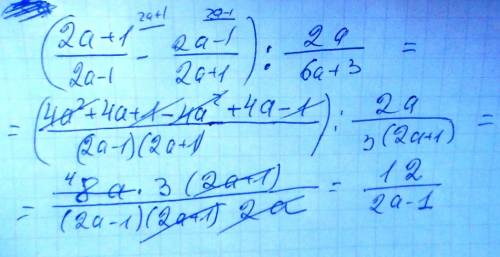 (2a+1/2a-1 ^2a+1 - 2a-1/2a+1 ^2a-1) : 2a/6a+3 =
= (4a²+4a+1-4a²+4a-1/(2a-1)(2a+1)) : 2a/3(2a+1) =
= ⁴8a · 3(2a+1)/(2a-1)(2a+1) 2a = 12/2a-1